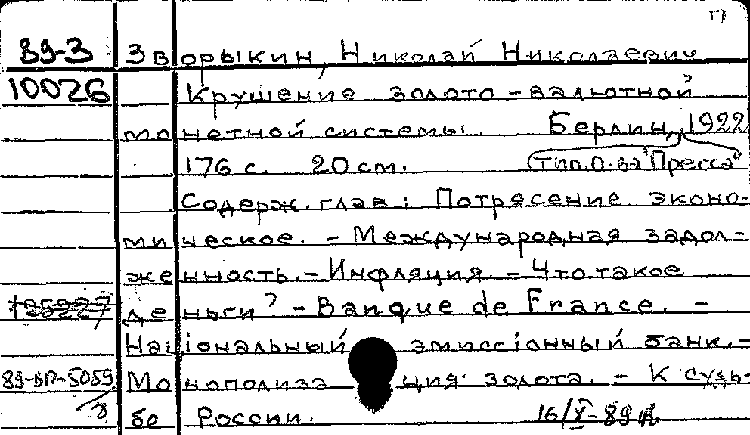 17
89-3 Зворыкин, Николай Николаевич
10026 Крушение золото-валютной
монетной системы. Берлин, 1922
176 с. 20 см. (тип. О-ва "Пресса")
Содерж. глав: Потрясение эконо-
мическое. - Международная задол-
женность. - Инфляция - Что такое
деньги? - Banque de France. -
Національный эмиссіонный банк. -
Монополизація золота. - К судь-
бе России. 16/X-89